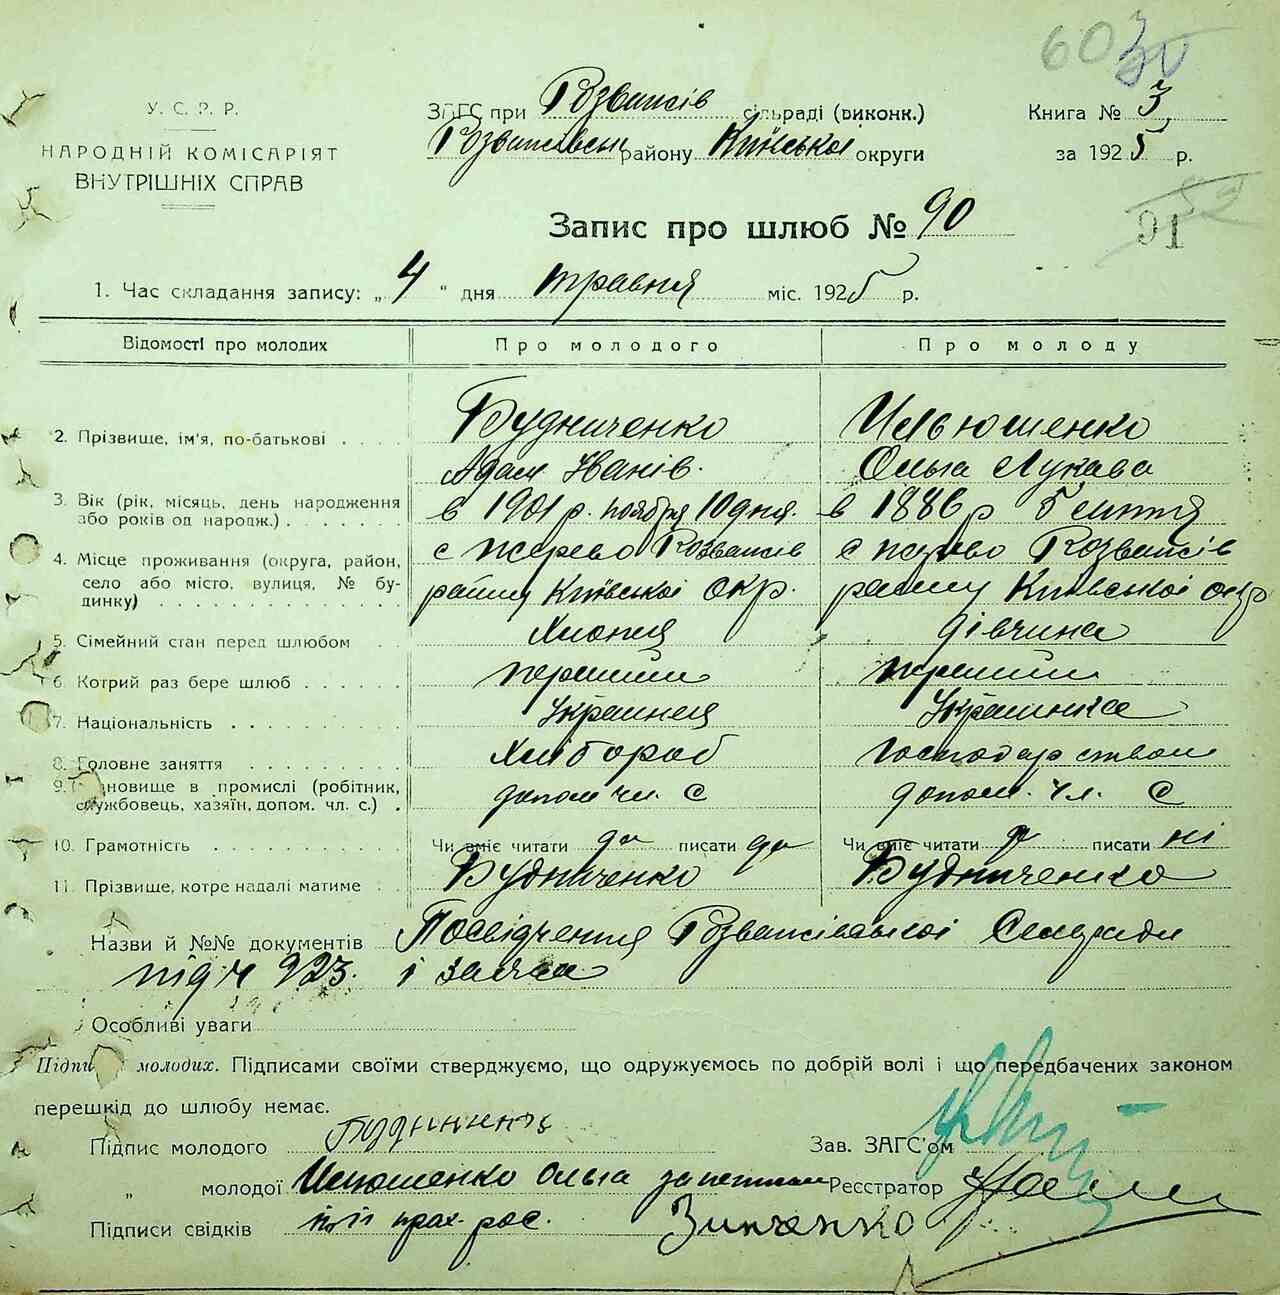 60 30
У. С. Р. Р.
НАРОДНІЙ КОМІСАРІЯТ
ВНУТРІШНІХ СПРАВ
ЗАГС при Розважів сільраді (виконк.)
Розважівськ району Київської округи
Книга № 3
за 1925 р.
91
Запис про шлюб № 90
1. Час складання запису: „ 4 “ дня травня міс. 1925 р.
Відомості про молодих Про молодого Про молоду
2. Прізвище, ім'я, по-батькові Будниченко Ильюшенко
Адам Иванів. Ольга Лукава
3. Вік (рік, місяць, день народження або років од народж.) в 1901 р. ноября 10 дня. в 1886 р 5
4. Місце проживання (округа, район, село або місто, вулиця, № будинку) с Жерево Розважів с Жерево Розважів
району Київської окр. району Київської окр
5. Сімейний стан перед шлюбом Хлопец дівчина
6. Котрий раз бере шлюб перший перший
7. Національність Украинец Украинка
8. Головне заняття Хлібороб господарством
9. Становище в промислі (робітник, службовець, хазяїн, допом. чл. с.) допом чл. с допом. чл. с
10. Грамотність Чи вміє читати да писати да Чи вміє читати да писати ні
11. Прізвище, котре надалі матиме Будниченко Будниченко
Назви й №№ документів Посвідчення Розважівської Сельради
під ч 923. і
Особливі уваги
Підписи молодих. Підписами своїми стверджуємо, що одружуємось по добрій волі і що передбачених законом
перешкід до шлюбу немає.
Підпис молодого
Зав. ЗАГС'ом
„ молодої Ильюшенко Ольга Реєстратор
Підписи свідків Зинченко